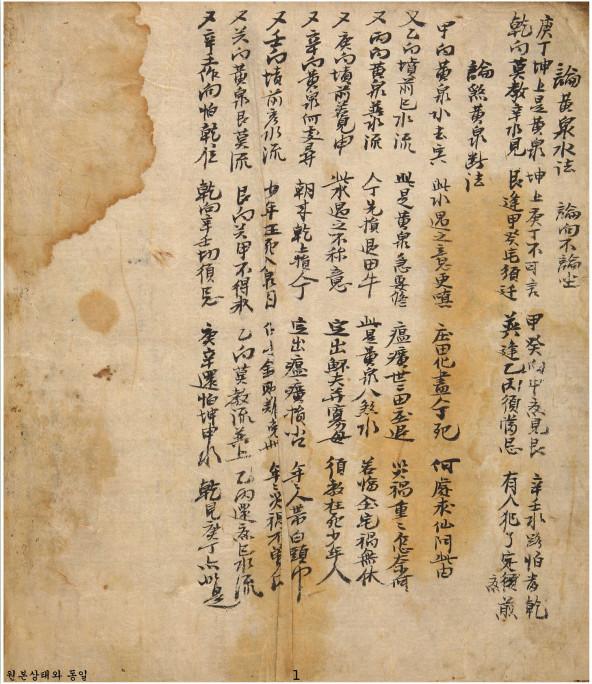 論黃泉水法 論向不論坐
庚丁坤上是黃泉 坤上庚丁不可言 甲癸向中忌見艮 辛壬水路怕當乾
乾向莫教辛水見 艮逢甲癸宅須迁 巽逢乙丙須當忌 有人犯了家 煎
論煞黃泉對法
甲向黃泉水去寅 此水遇之意更嗔 庄田化盡人死 何處求仙问此由
又乙向墳前巳水流 此是黃泉急要 瘟世世田退 災禍重重怎奈何
又丙向黃泉巽水流 人丁先損退田牛 此是黃泉八煞水 若悔全宅禍無休
又庚向墳前若見申 此水遇之不称意 定出鰥夫并寡母 須教枉死少年人
又辛向黃泉何處尋 朝来乾上損人丁 定出瘟損小口 年人帶白頭巾
又壬向墳前亥水流 少年王死入泉日 金 难免 年年災禍不曾
又癸向黃泉艮莫流 艮向癸甲不得取 乙向莫教流巽上 乙丙還 巳水流
又辛壬作向怕乾位 乾向辛壬切須忌 庚辛還怕坤申水 乾見庚丁亦 是
원본상태와 동일
1